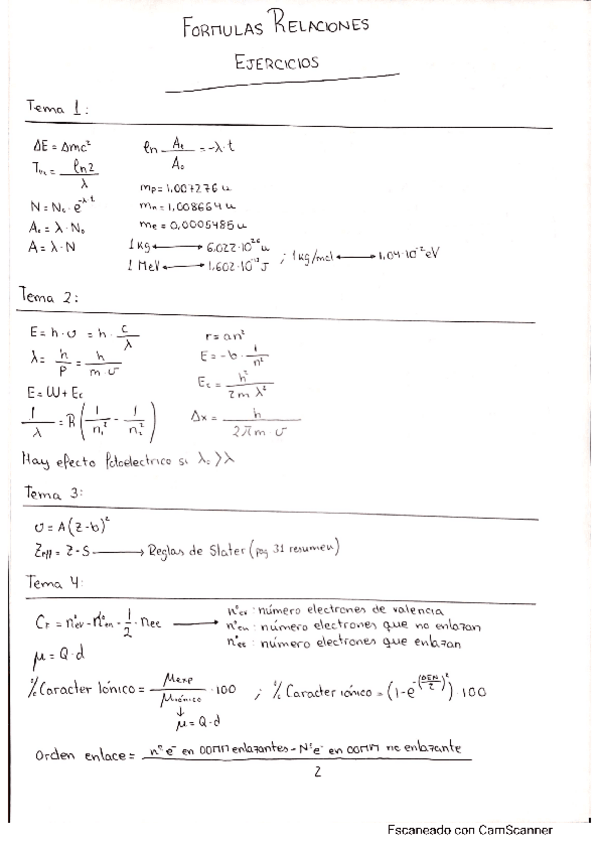 FORMULAS RELACIONES
EJERCICIOS
Tema 1:
ΔE = Δmc² ln A_t/A₀ = -λ·t
T½ = ln2/λ
mp = 1,007276 u
N = N₀·e^(-λt) mn = 1,008664 u
A₀ = λ·N₀ me = 0,0005485 u
A = λ·N 1 Kg ⟷ 6.022·10²⁶ u ; 1 Kg/mol ⟷ 1,04·10⁻² eV
1 MeV ⟷ 1,602·10⁻¹³ J
Tema 2:
E = h·υ = h·c/λ r = an²
λ = h/P = h/(m·υ) E = -b·1/n²
E = W + Ec Ec = h²/(2mλ²)
1/λ = R(1/n₁² - 1/n₂²) Δx = h/(2πm·υ)
Hay efecto fotoelectrico si λ₀ > λ
Tema 3:
υ = A(Z-b)²
Zeff = Z - S ⟶ Reglas de Slater (pag 31 resumen)
Tema 4:
Cf = nºev - nºen - 1/2·nec ⟶ nºev: número electrones de valencia
nºen: número electrones que no enlazan
nºec: número electrones que enlazan
μ = Q·d
% Caracter Iónico = μexp/μiónico · 100 ; % Caracter iónico = (1-e^(-(ΔEN/2)²))·100
↓
μ = Q·d
Orden enlace = (nº e⁻ en OOMM enlazantes - Nº e⁻ en OOMM no enlazante)/2
Escaneado con CamScanner